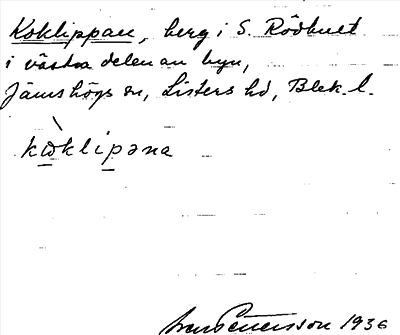 Koklippan, berg i S. Rödhult
i västra delen av byn,
Jämshögs sn, Listers hd, Blek. l.
kωklipəna
Pettersson 1936